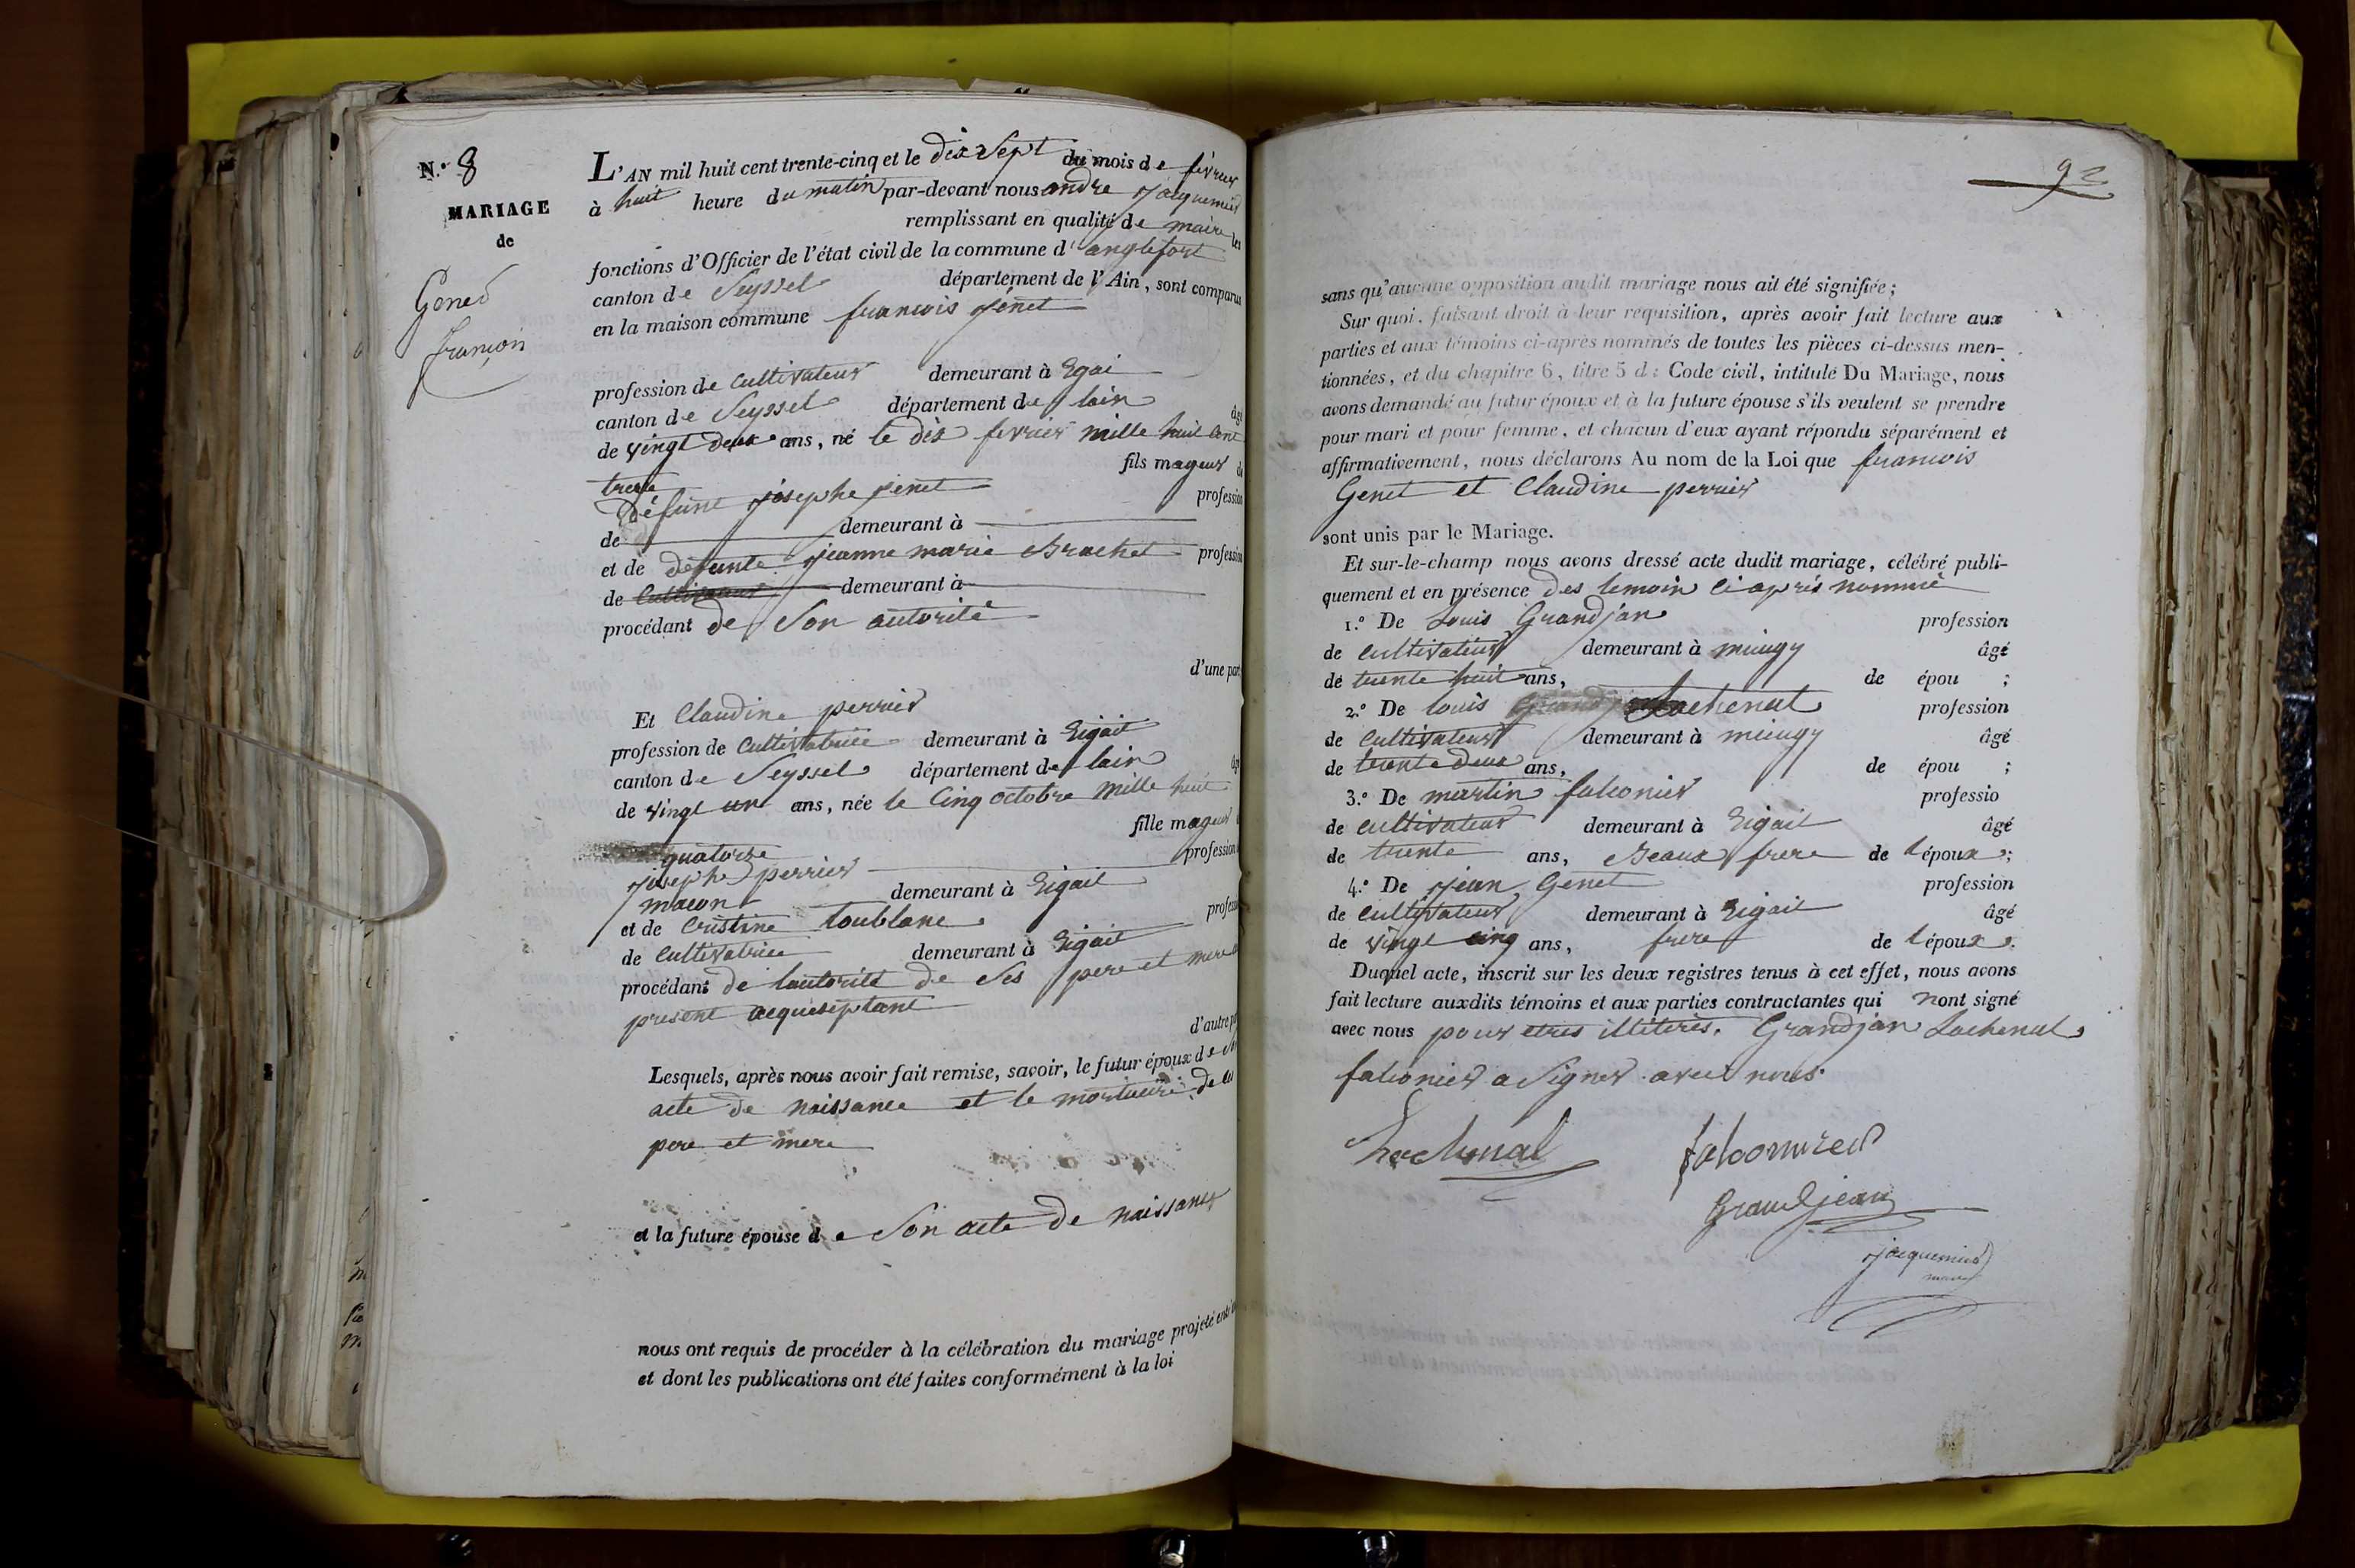 N.º 8
MARIAGE
de
Genet
françois
L'AN mil huit cent trente-cinq et le dix Sept du mois de fevrier
à huit heure du matin par-devant nous andre Jacquemier
remplissant en qualité de maire les
fonctions d'Officier de l'état civil de la commune d'anglefort
canton de Seyssel département de l'Ain, sont comparus
en la maison commune francois jenet
profession de Cultivateur demeurant à Egai
canton de Seyssel département de lain âgé
de vingt deux ans, né le dix fevrier mille huit cent
treize fils mageur de
défunt josephe jenet profession
de demeurant à
et de defunte jeanne marie Brachet profession
de Cultivateur demeurant à
procédant de Son autorité
d'une part
Et Claudine perrier
profession de Cultivatrice demeurant à Eigait
canton de Seyssel département de lain âgé
de vingt un ans, née le Cinq octobre mille huit
quatorze fille mageur
josephe perrier profession
macon demeurant à Eigait
et de Cristine toublanc profession
de Cultivatrice demeurant à Eigait
procédant de lautorité de Ses pere et mere
present acquiseptant
d'autre part
Lesquels, après nous avoir fait remise, savoir, le futur époux de Son
acte de naissance et le mortuaire de ces
pere et mere
et la future épouse de Son acte de naissance
nous ont requis de procéder à la célébration du mariage projeté entr'eux
et dont les publications ont été faites conformément à la loi
92
sans qu'aucune opposition audit mariage nous ait été signifiée;
Sur quoi, faisant droit à leur requisition, après avoir fait lecture aux
parties et aux témoins ci-après nommés de toutes les pièces ci-dessus men-
tionnées, et du chapitre 6, titre 5 d: Code civil, intitulé Du Mariage, nous
avons demandé au futur époux et à la future épouse s'ils veulent se prendre
pour mari et pour femme, et chacun d'eux ayant répondu séparément et
affirmativement, nous déclarons Au nom de la Loi que francois
Genet et Claudine perrier
sont unis par le Mariage.
Et sur-le-champ nous avons dressé acte dudit mariage, célébré publi-
quement et en présence des temoin ci après nommé
1.º De Louis Grandjan profession
de cultivateur demeurant à mieugy âgé
de trente huit ans, de épou ;
2.º De louis Lachenal profession
de Cultivateur demeurant à mieugy âgé
de trente deux ans, de épou ;
3.º De martin falconier professio
de cultivateur demeurant à Eigait âgé
de trente ans, Beaux frere de lépoux;
4.º De jean Genet profession
de cultivateur demeurant à Eigait âgé
de vingt cinq ans, frere de lépoux.
Duquel acte, inscrit sur les deux registres tenus à cet effet, nous avons
fait lecture auxdits témoins et aux parties contractantes qui nont signé
avec nous pour etres illiteres. Grandjan Lachenal
falconier a Signer avec nous
Lachenal falconnier
Grandjean
jacquemier
maire